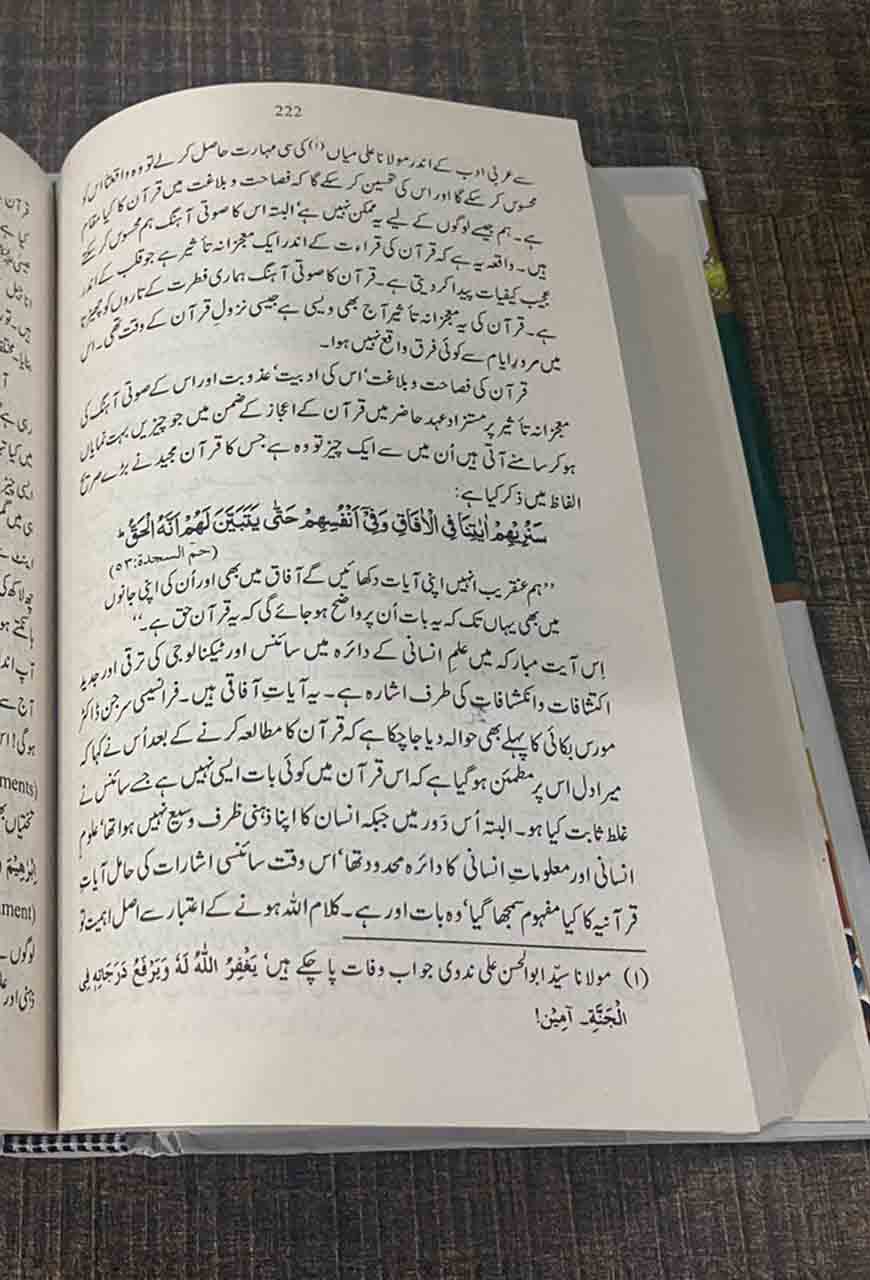 222
سے عربی ادب کے اندر مولانا علی میاں (۱) کی سی مہارت حاصل کر لے تو وہ واقعتاً اس کو
محسوس کر سکے گا اور اس کی تحسین کر سکے گا کہ فصاحت و بلاغت میں قرآن کا کیا مقام
ہے۔ ہم جیسے لوگوں کے لیے یہ ممکن نہیں ہے، البتہ اس کا صوتی آہنگ ہم محسوس کر سکتے
ہیں۔ واقعہ یہ ہے کہ قرآن کی قراءت کے اندر ایک معجزانہ تأثیر ہے جو قلب کے اندر
عجیب کیفیات پیدا کر دیتی ہے۔ قرآن کا صوتی آہنگ ہماری فطرت کے تاروں کو چھیڑتا
ہے۔ قرآن کی یہ معجزانہ تأثیر آج بھی ویسی ہے جیسی نزولِ قرآن کے وقت تھی۔ اس
میں مرورِ ایام سے کوئی فرق واقع نہیں ہوا۔
قرآن کی فصاحت و بلاغت، اس کی ادبیت، عذوبت اور اس کے صوتی آہنگ کی
معجزانہ تأثیر پر مستزاد عہد حاضر میں قرآن کے اعجاز کے ضمن میں جو چیزیں بہت نمایاں
ہو کر سامنے آتی ہیں اُن میں سے ایک چیز تو وہ ہے جس کا قرآن مجید نے بڑے صریح
الفاظ میں ذکر کیا ہے:
سَنُرِیْهِمْ اٰیٰتِنَا فِی الْاٰفَاقِ وَفِیْٓ اَنْفُسِهِمْ حَتّٰی یَتَبَیَّنَ لَهُمْ اَنَّهُ الْحَقُّ ؕ
(حٰمٓ السجدة: ۵۳)
’’ہم عنقریب انہیں اپنی آیات دکھائیں گے آفاق میں بھی اور اُن کی اپنی جانوں
میں بھی یہاں تک کہ یہ بات اُن پر واضح ہو جائے گی کہ یہ قرآن حق ہے۔‘‘
اِس آیت مبارکہ میں علمِ انسانی کے دائرہ میں سائنس اور ٹیکنالوجی کی ترقی اور جدید
اکتشافات و انکشافات کی طرف اشارہ ہے۔ یہ آیاتِ آفاقی ہیں۔ فرانسیسی سرجن ڈاکٹر
مورس بکائی کا پہلے بھی حوالہ دیا جا چکا ہے کہ قرآن کا مطالعہ کرنے کے بعد اُس نے کہا کہ
میرا دل اس پر مطمئن ہو گیا ہے کہ اس قرآن میں کوئی بات ایسی نہیں ہے جسے سائنس نے
غلط ثابت کیا ہو۔ البتہ اُس دَور میں جبکہ انسان کا اپنا ذہنی ظرف وسیع نہیں ہوا تھا، علومِ
انسانی اور معلوماتِ انسانی کا دائرہ محدود تھا، اس وقت سائنسی اشارات کی حامل آیاتِ
قرآنیہ کا کیا مفہوم سمجھا گیا، وہ بات اور ہے۔ کلام اللہ ہونے کے اعتبار سے اصل اہمیت تو
(۱) مولانا سیّد ابوالحسن علی ندوی جو اب وفات پا چکے ہیں، یَغْفِرُ اللّٰهُ لَهٗ وَیَرْفَعُ دَرَجَاتِهٖ فِی
الْجَنَّةِ۔ آمِیْن!
ments)
ment)